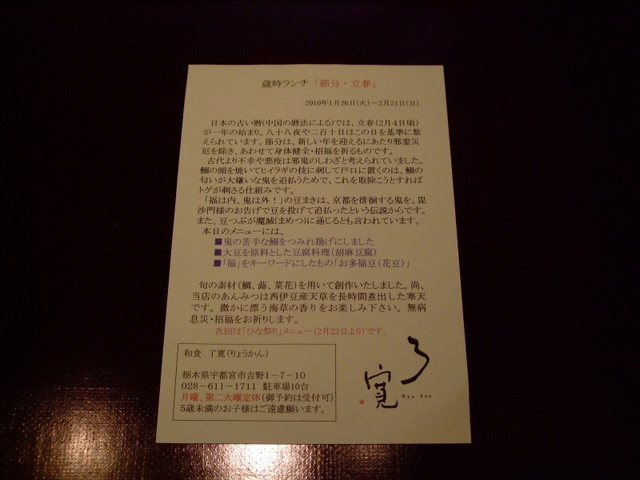 歳時ランチ「節分・立春」
2010年1月26日(火)~2月21日(日)
日本の古い暦(中国の暦法による)では、立春(2月4日頃)
が一年の始まり。八十八夜や二百十日はこの日を基準に数
えられています。節分は、新しい年を迎えるにあたり邪霊災
厄を除き、あわせて身体健全・招福を祈るものです。
古代より不幸や悪疫は邪鬼のしわざと考えられていました。
鰯の頭を焼いてヒイラギの枝に刺して戸口に置くのは、鰯の
匂いが大嫌いな鬼を追払うためで、これを取除こうとすれば
トゲが刺さる仕組みです。
「福は内、鬼は外!」の豆まきは、京都を徘徊する鬼を、毘
沙門様のお告げで豆を投げて追払ったという伝説からです。
また、豆つぶが魔滅(まめつ)に通じるとも言われています。
本日のメニューには、
■鬼の苦手な鰯をつみれ揚げにしました
■大豆を原料とした豆腐料理(胡麻豆腐)
■「福」をキーワードにしたもの「お多福豆(花豆)」
旬の素材(鯛、蕗、菜花)を用いて創作いたしました。尚、
当店のあんみつは西伊豆産天草を長時間煮出した寒天
です。微かに漂う海草の香りをお楽しみ下さい。無病
息災・招福をお祈りします。
次回は「ひな祭り」メニュー(2月23日より)です。
和食 了寛(りょうかん)
栃木県宇都宮市吉野1-7-10
028-611-1711 駐車場10台
月曜、第二火曜定休(御予約は受付可)
5歳未満のお子様はご遠慮願います。
了寛
Ryo-kan